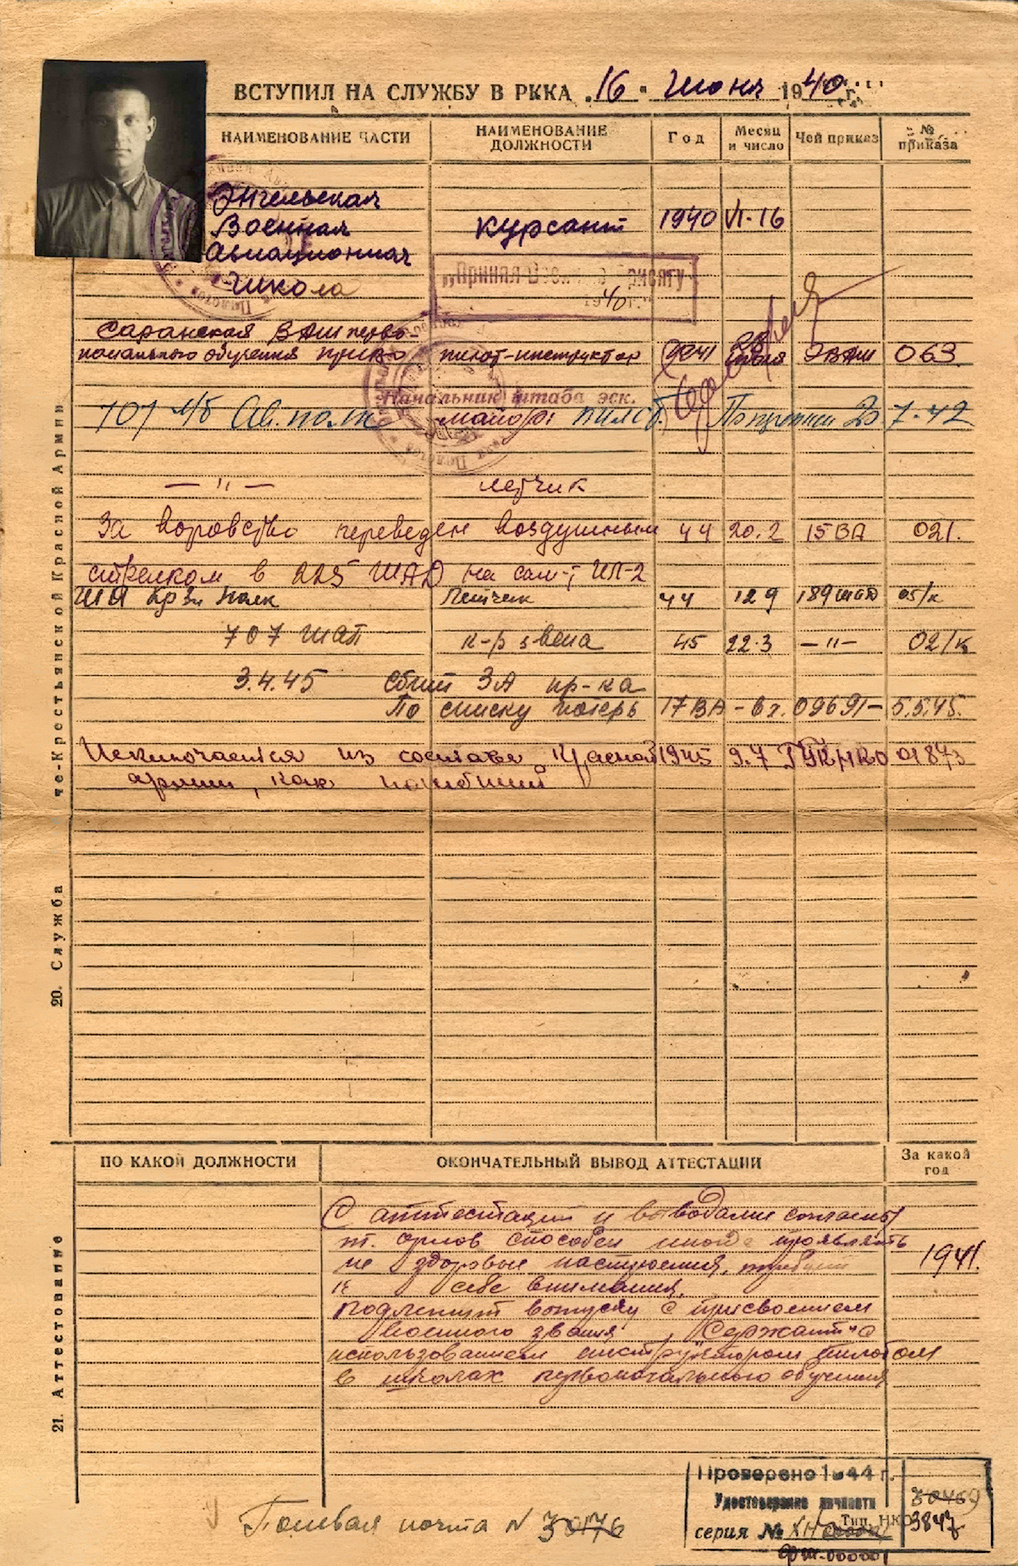 ВСТУПИЛ НА СЛУЖБУ В РККА „16" Июня 1940 г.
НАИМЕНОВАНИЕ ЧАСТИ
НАИМЕНОВАНИЕ ДОЛЖНОСТИ
Год
Месяц и число
Чей приказ
№ приказа
Энгельская
Военная
Авиационная
Школа
курсант 1940 VI-16
„Принял Военную присягу
1940 г."
Саранская ВАШ перво-
начального обучения пилот-инструктор 1941 ЭВАШ 063
Начальник штаба эск.
майор:
707 Ав. полк пилот. 7-42
— " — летчик
За воровство переведен воздушным 44 20.2 15 ВА 021.
стрелком в 225 ШАД на сам-т ИЛ-2
полк Летчик 44 12 9 189 шад 05/к
707 шап к-р звена 45 22.3 — " — 02/к
3.4.45 сбит ЗА пр-ка
По списку потерь 17 ВА - вх. 09691- 5.5.45.
Исключается из состава Красной 1945 9.7 ГУК НКО 01873
армии, как погибший
че-Крестьянской Красной Армии
20. Служба
ПО КАКОЙ ДОЛЖНОСТИ
ОКОНЧАТЕЛЬНЫЙ ВЫВОД АТТЕСТАЦИИ
За какой год
С аттестацией и выводами согласны
т. Орлов способен иногда проявлять
не здоровые настроения, требует 1941.
к себе внимания.
Подлежит выпуску с присвоением
военного звания „Сержант" с
использованием инструктором пилотом
в школах первоначального обучения
21. Аттестование
Проверено 1944 г.
Удостоверение личности
серия №
30469
3847
Тип. НКО
Полевая почта N 30176